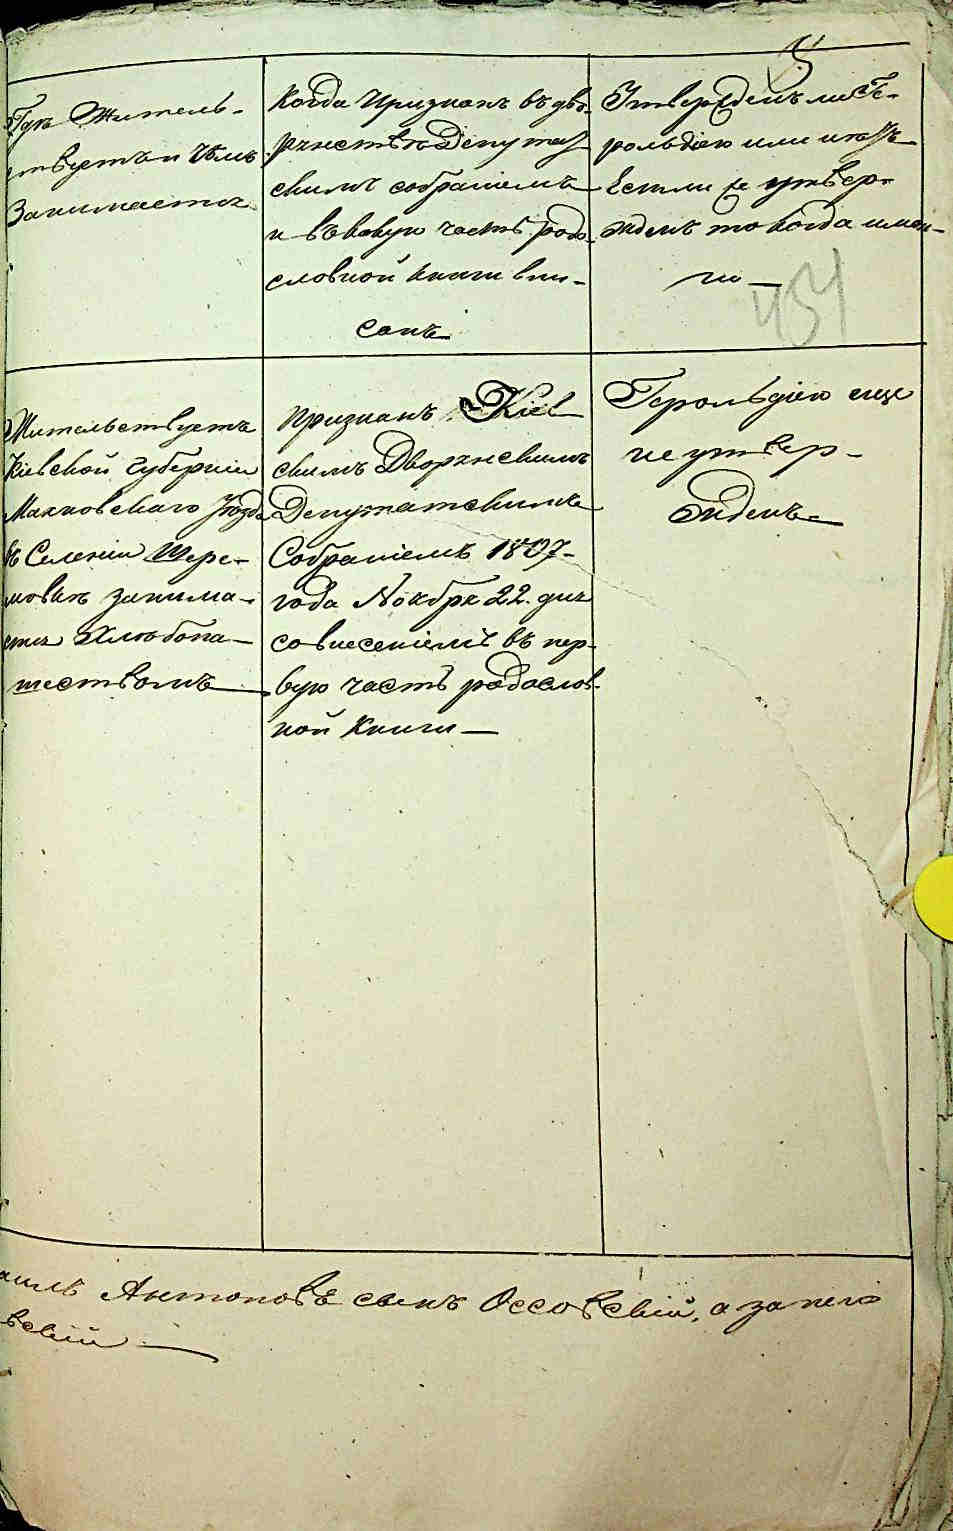 5
Гдѣ Житель-
ствуетъ и чѣмъ
Занимается
Когда Признанъ въ дво-
рянствѣ Депутат-
скимъ собраніемъ
и въ какую часть родо-
словной книги впи-
санъ
Утвержденъ ли Ге-
рольдіею или нѣтъ
Естли же утвер-
жденъ то когда имен-
но
451
Жительствуетъ
Кіевской Губерніи
Махновскаго Уѣзда
въ Селеніи Шере-
мовкѣ занима-
ется Хлѣбопа-
шествомъ
Признанъ Кіев
скимъ Дворянскимъ
Депутатскимъ
Собраніемъ 1807-
года Ноября 22. дня
со внесеніемъ въ пер-
вую часть родослов-
ной Книги
Герольдіею еще
не утвер-
жденъ
Антоновъ сынъ Оссовскій, а за него
вскій